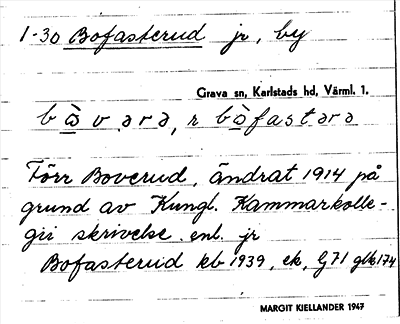 1-30 Bofasterud jr, by
Grava sn, Karlstads hd, Värml. 1.
bò̱vərə, r bò̱fastərə
Förr Boverud, ändrat 1914 på
grund av Kungl. Kammarkolle-
gii skrivelse enl. jr
Bofasterud kb 1939, ek, Gj1 glk174
MARGIT KJELLANDER 1947